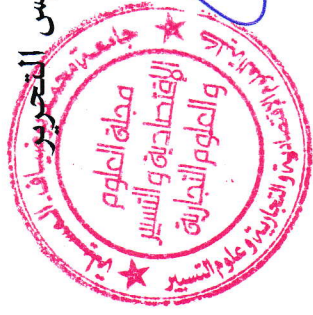 س التحرير
جامعة محمد بوضياف المسيلة
كلية العلوم الاقتصادية والتجارية وعلوم التسيير
مجلة العلوم
الإقتصادية و التسيير
و العلوم التجارية